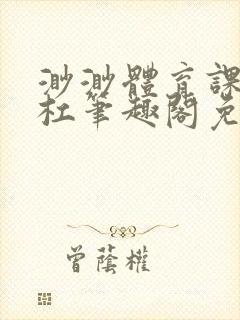 渺渺體育課
杜筆趣閣免
曾蔭權